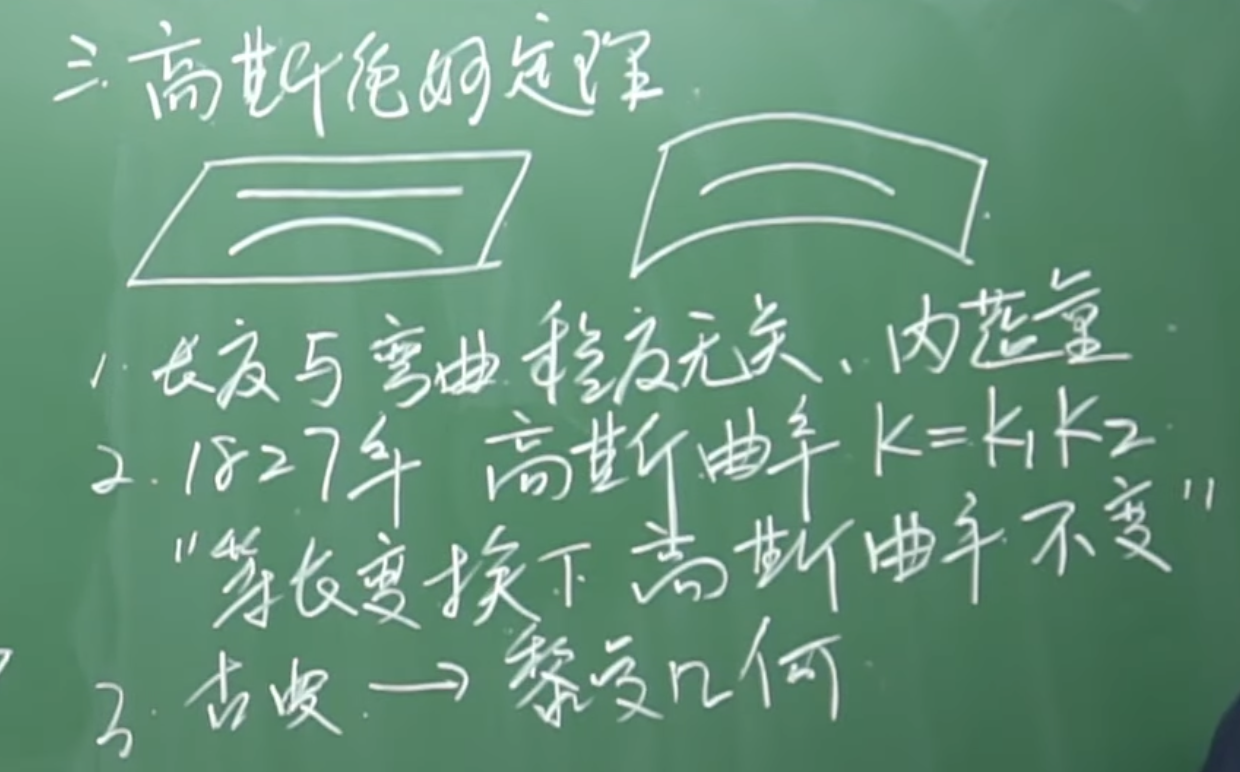 三.高斯绝妙定理.
1.长度与弯曲程度无关、内蕴量
2.1827年 高斯曲率 K=K₁K₂
"等长变换下高斯曲率不变"
3.古典→黎曼几何